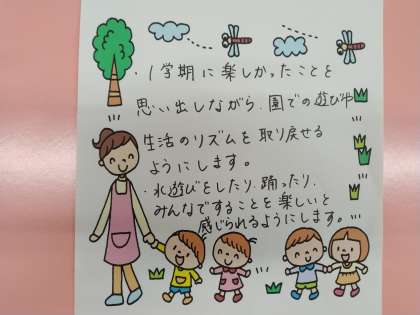 ・1学期に楽しかったことを
思い出しながら、園での遊びや
生活のリズムを取り戻せる
ようにします。
・水遊びをしたり、踊ったり、
みんなですることを楽しいと
感じられるようにします。